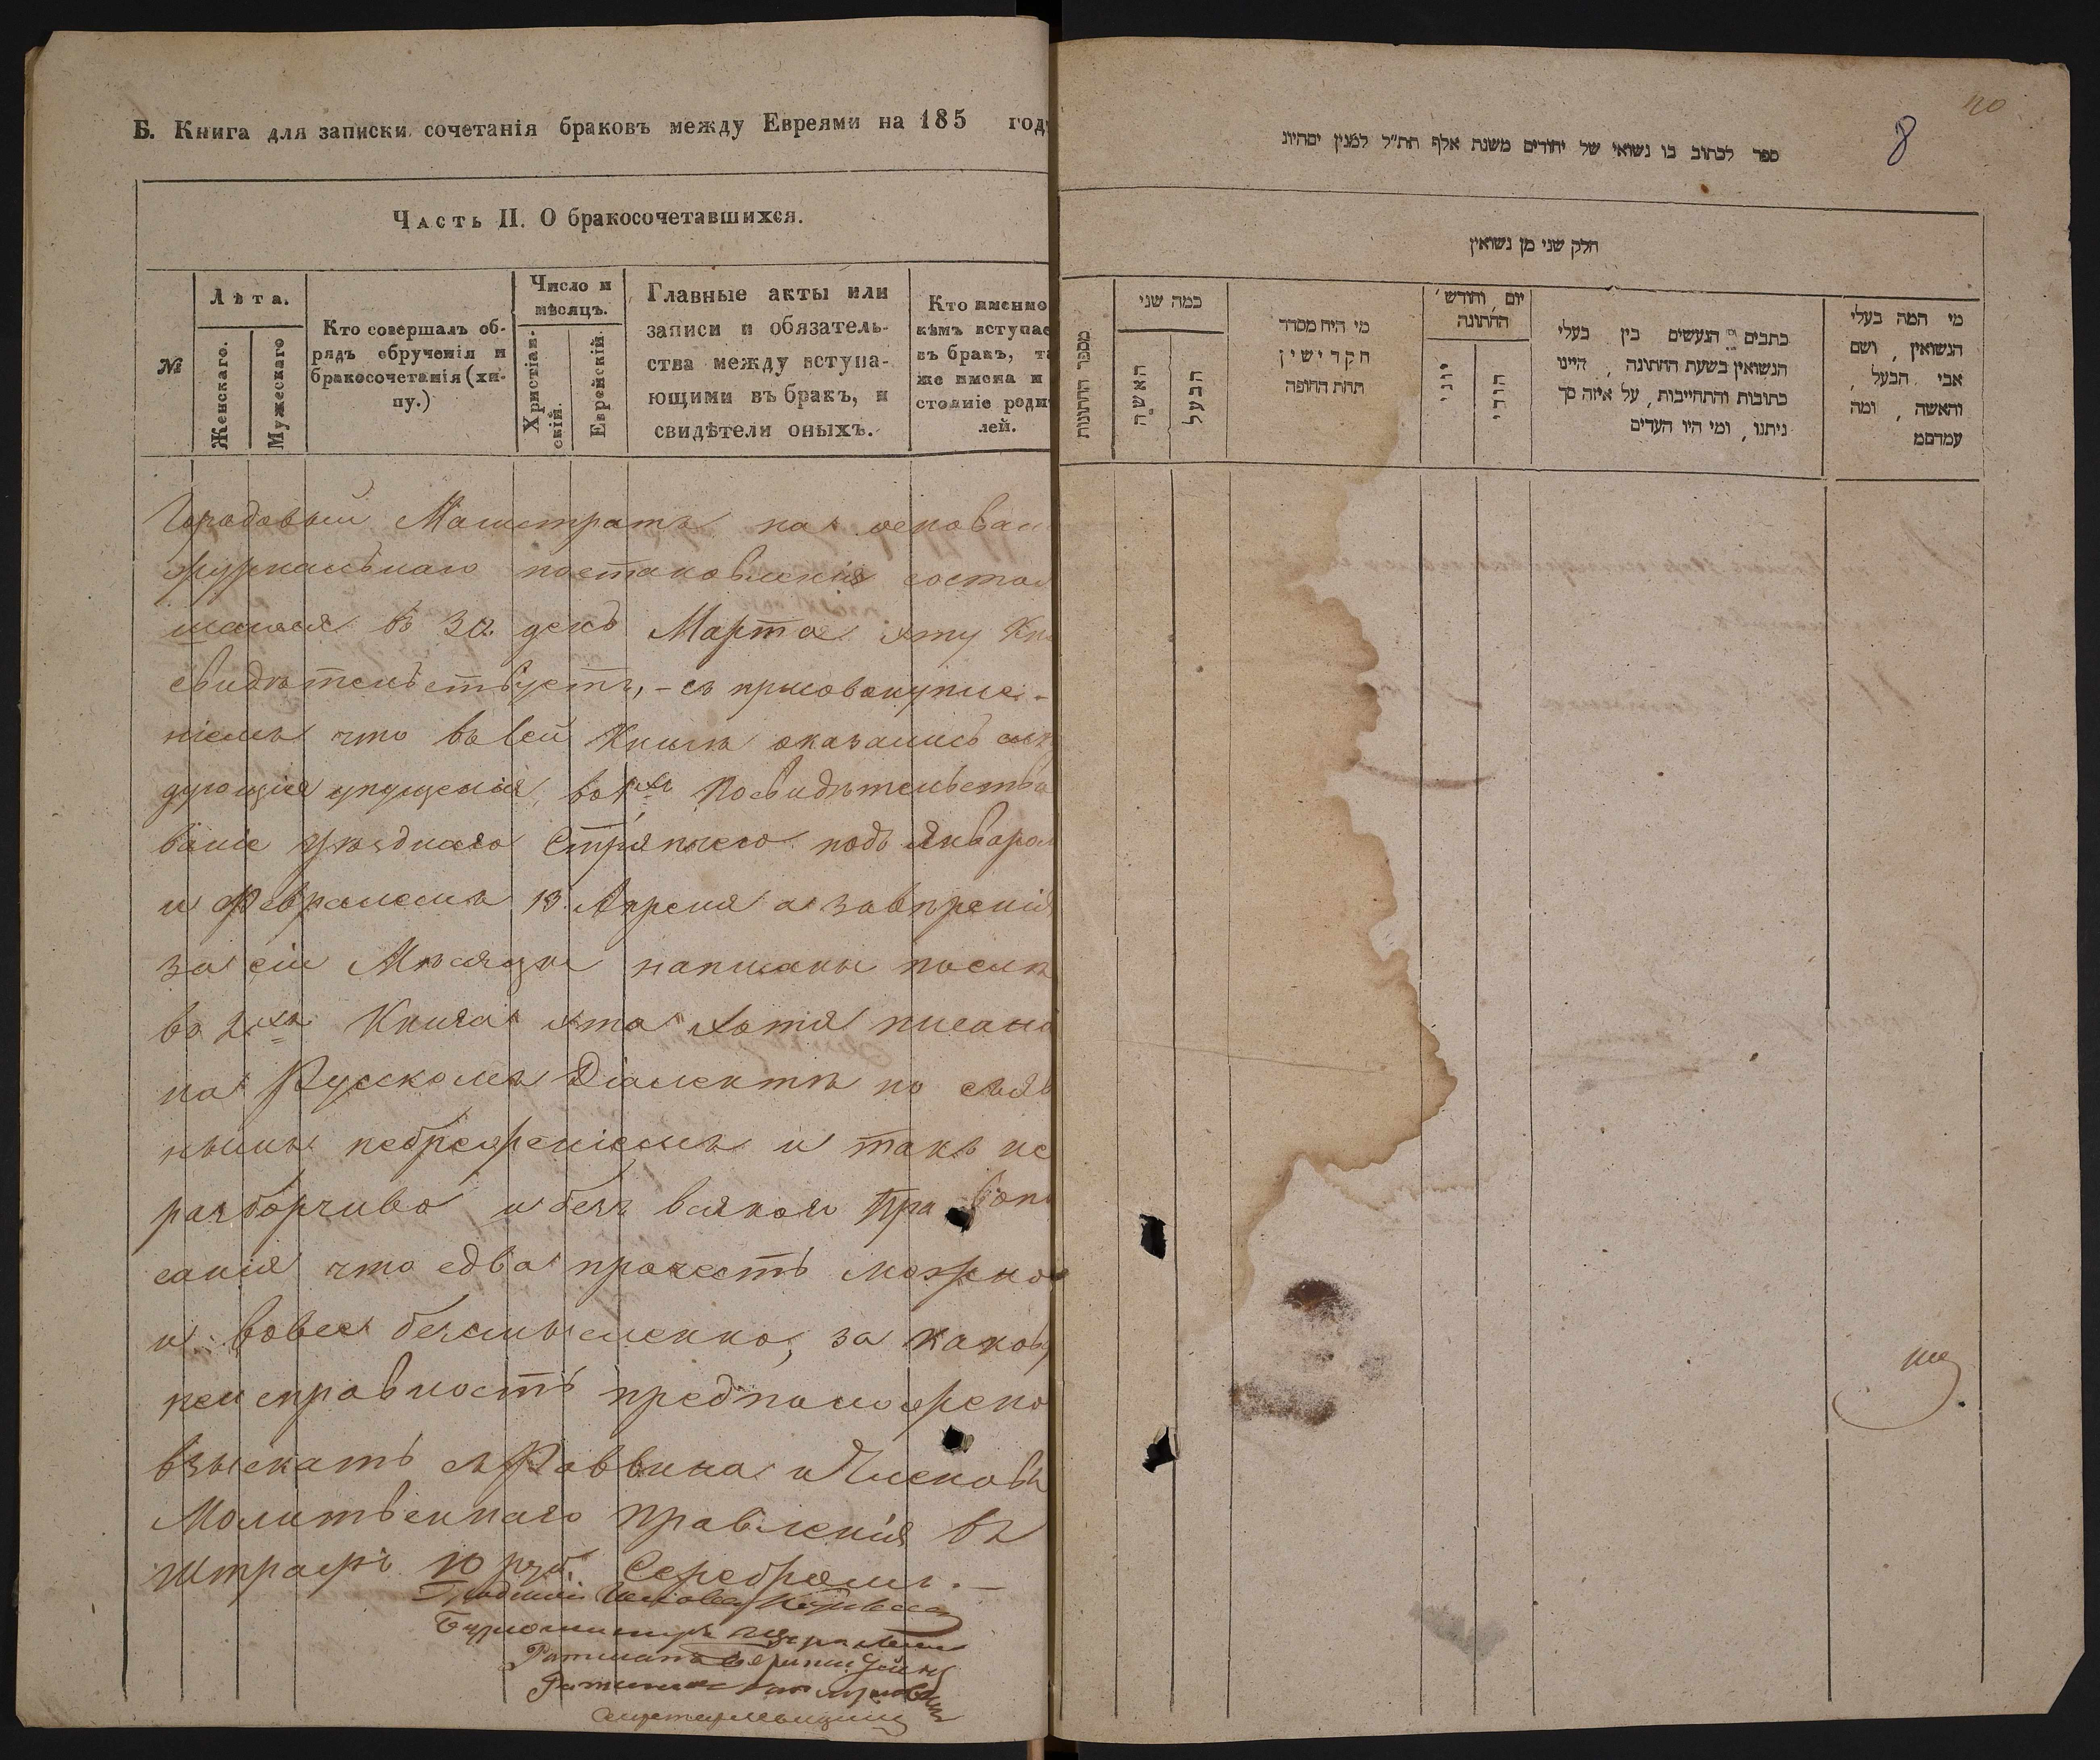 Б. Книга для записки сочетанія браковъ между Евреями на 185 год
Часть II. О бракосочетавшихся.
№
Лѣта.
Женскаго.
Мужескаго
Кто совершалъ об-
рядъ обрученія и
бракосочетанія (хи-
пу.)
Число и
мѣсяцъ.
Христіан-
скій.
Еврейскій.
Главные акты или
записи и обязатель-
ства между вступа-
ющими въ бракъ, и
свидѣтели оныхъ.
Кто именно
кѣмъ вступае
въ бракъ, та
же имена и
стояніе роди
лей.
Городовый Магистратъ на основан
журнальнаго постановленія состоя
шагося въ 30. день Марта эту Кн
свидѣтельствуетъ, - съ присовокупле-
ніемъ что въ сей Книгѣ оказались слѣ
дующія упущенія, во 1хъ Посвидѣтельство
ваніе Уѣзднаго Стряпчего подъ Январем
и Февралемъ 13. Апреля а завѣренія
за сіи Мѣсяцы написаны послѣ
во 2хъ Книга эта хотя писана
на Русскомъ Діалектѣ но съ яв
нымъ небреженіемъ и такъ не
разборчиво и безъ всякаго Правопи
санія что едва прочесть можно
и вовсе безсмысленно, за каков
неисправность предположено
взыскать съ Раввина и Членовъ
Молитвеннаго Правленія въ
Штрафъ 10 руб. Серебромъ. —
Бургомистръ
Ратманъ
Ратманъ
ספר לכתוב בו נשואי של יהודים משנת אלף תת״ל למנין יסהיונ
8
חלק שני מן נשואין
מי המה בעלי
הנשואין, ושם
אבי הבעל,
והאשה, ומה
עמדםמ
כתבים הנעשים בין בעלי
הנשואין בשעת החתונה, היינו
כתובות והתחייבות, על איזה סך
ניתנו, ומי היו העדים
יום והודש
החתונה
יהודי
יוני
מי היה מסדר
הקדישין
תחת החופה
כמה שני
הבעל
האשה
מספר החתונות